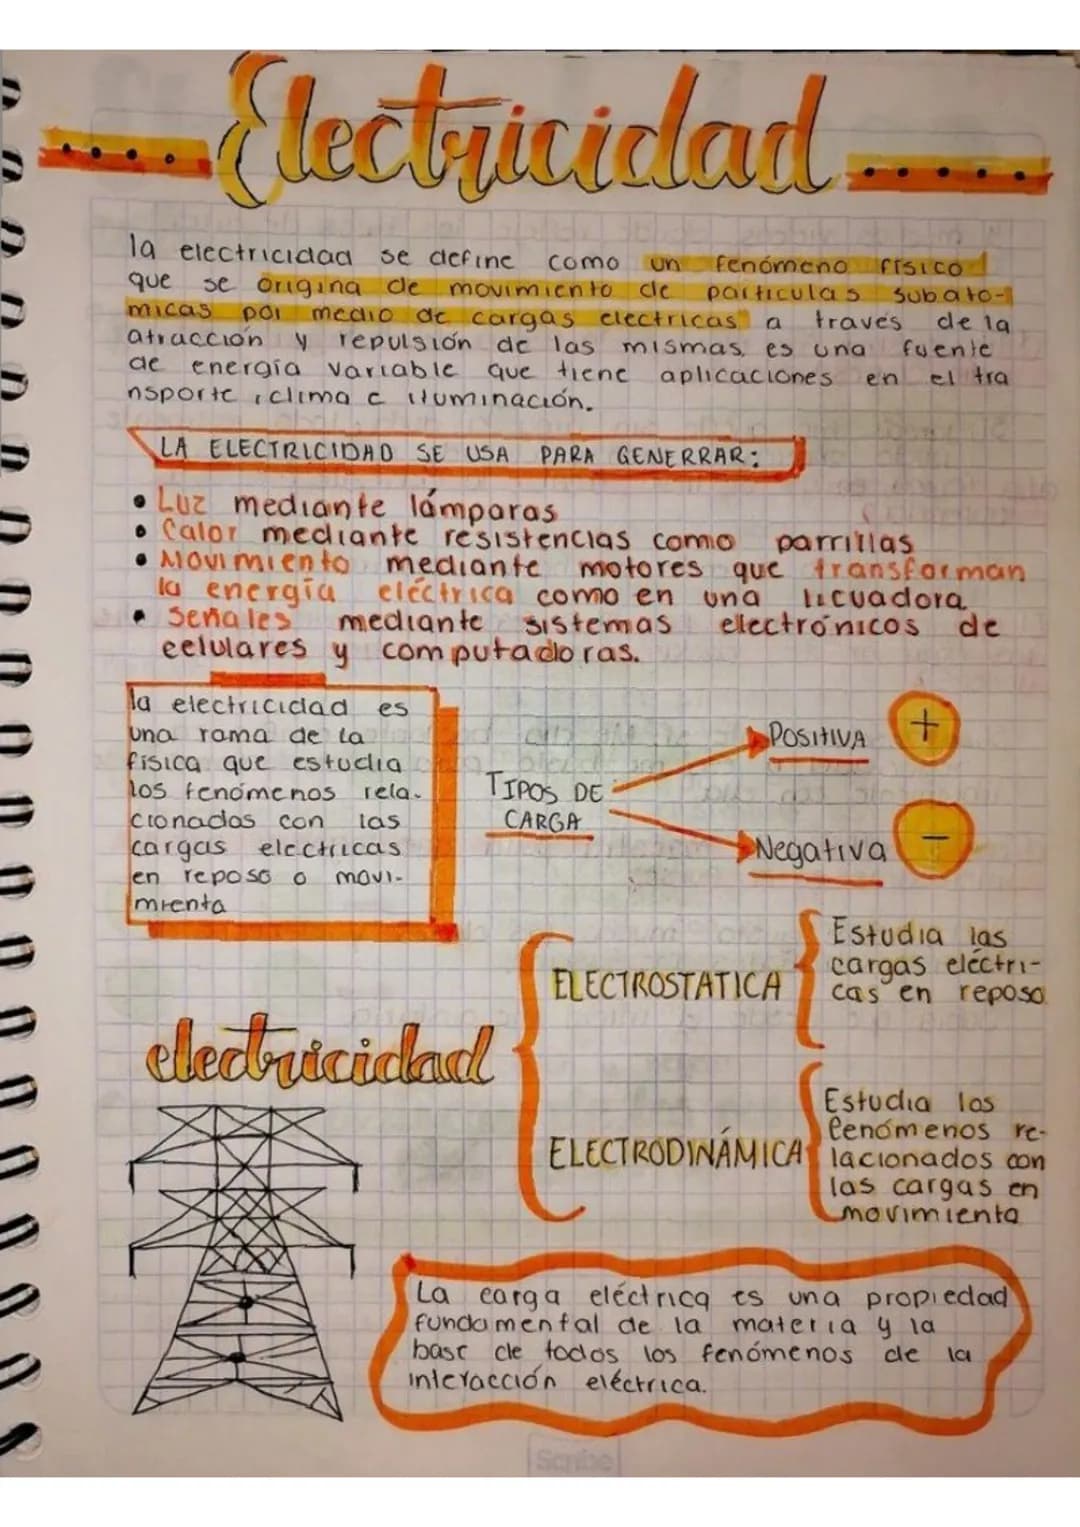 Electricidad
la electricidad se define como un fenómeno físico
que se origina de movimiento de particulas subato-
micas por medio de cargas electricas a traves de la
atracción y repulsión de las mismas, es una fuente
de energía variable que tiene aplicaciones en el tra
nsporte, clima e iluminación.
LA ELECTRICIDAD SE USA PARA GENERRAR:
• Luz mediante lámparas
• Calor mediante resistencias como parrillas
• Movimiento mediante motores que transforman
la energía eléctrica como en una licuadora
• Señales mediante sistemas electrónicos de
celulares y computadoras.
la electricidad es
una rama de la
fisica que estudia
los fenómenos rela-
cionados con las
cargas electricas
en reposo o movi-
mienta
TIPOS DE
CARGA
POSITIVA +
Negativa -
electricidad
ELECTROSTATICA
Estudia las
cargas eléctri-
cas en reposo
ELECTRODINÁMICA
Estudia los
fenómenos re-
lacionados con
las cargas en
movimiento
La carga eléctrica es una propiedad
fundamental de la materia y la
base de todos los fenómenos de la
interacción eléctrica.
Scribe